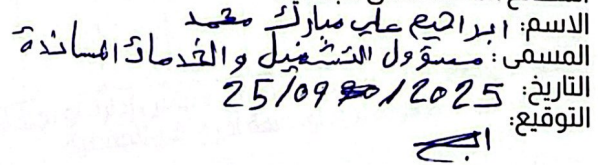 الاسم: ابراهيم علي مبارك محمد
المسمى: مسؤول التشغيل والخدمات المساندة
التاريخ: 25/09/2025
التوقيع: